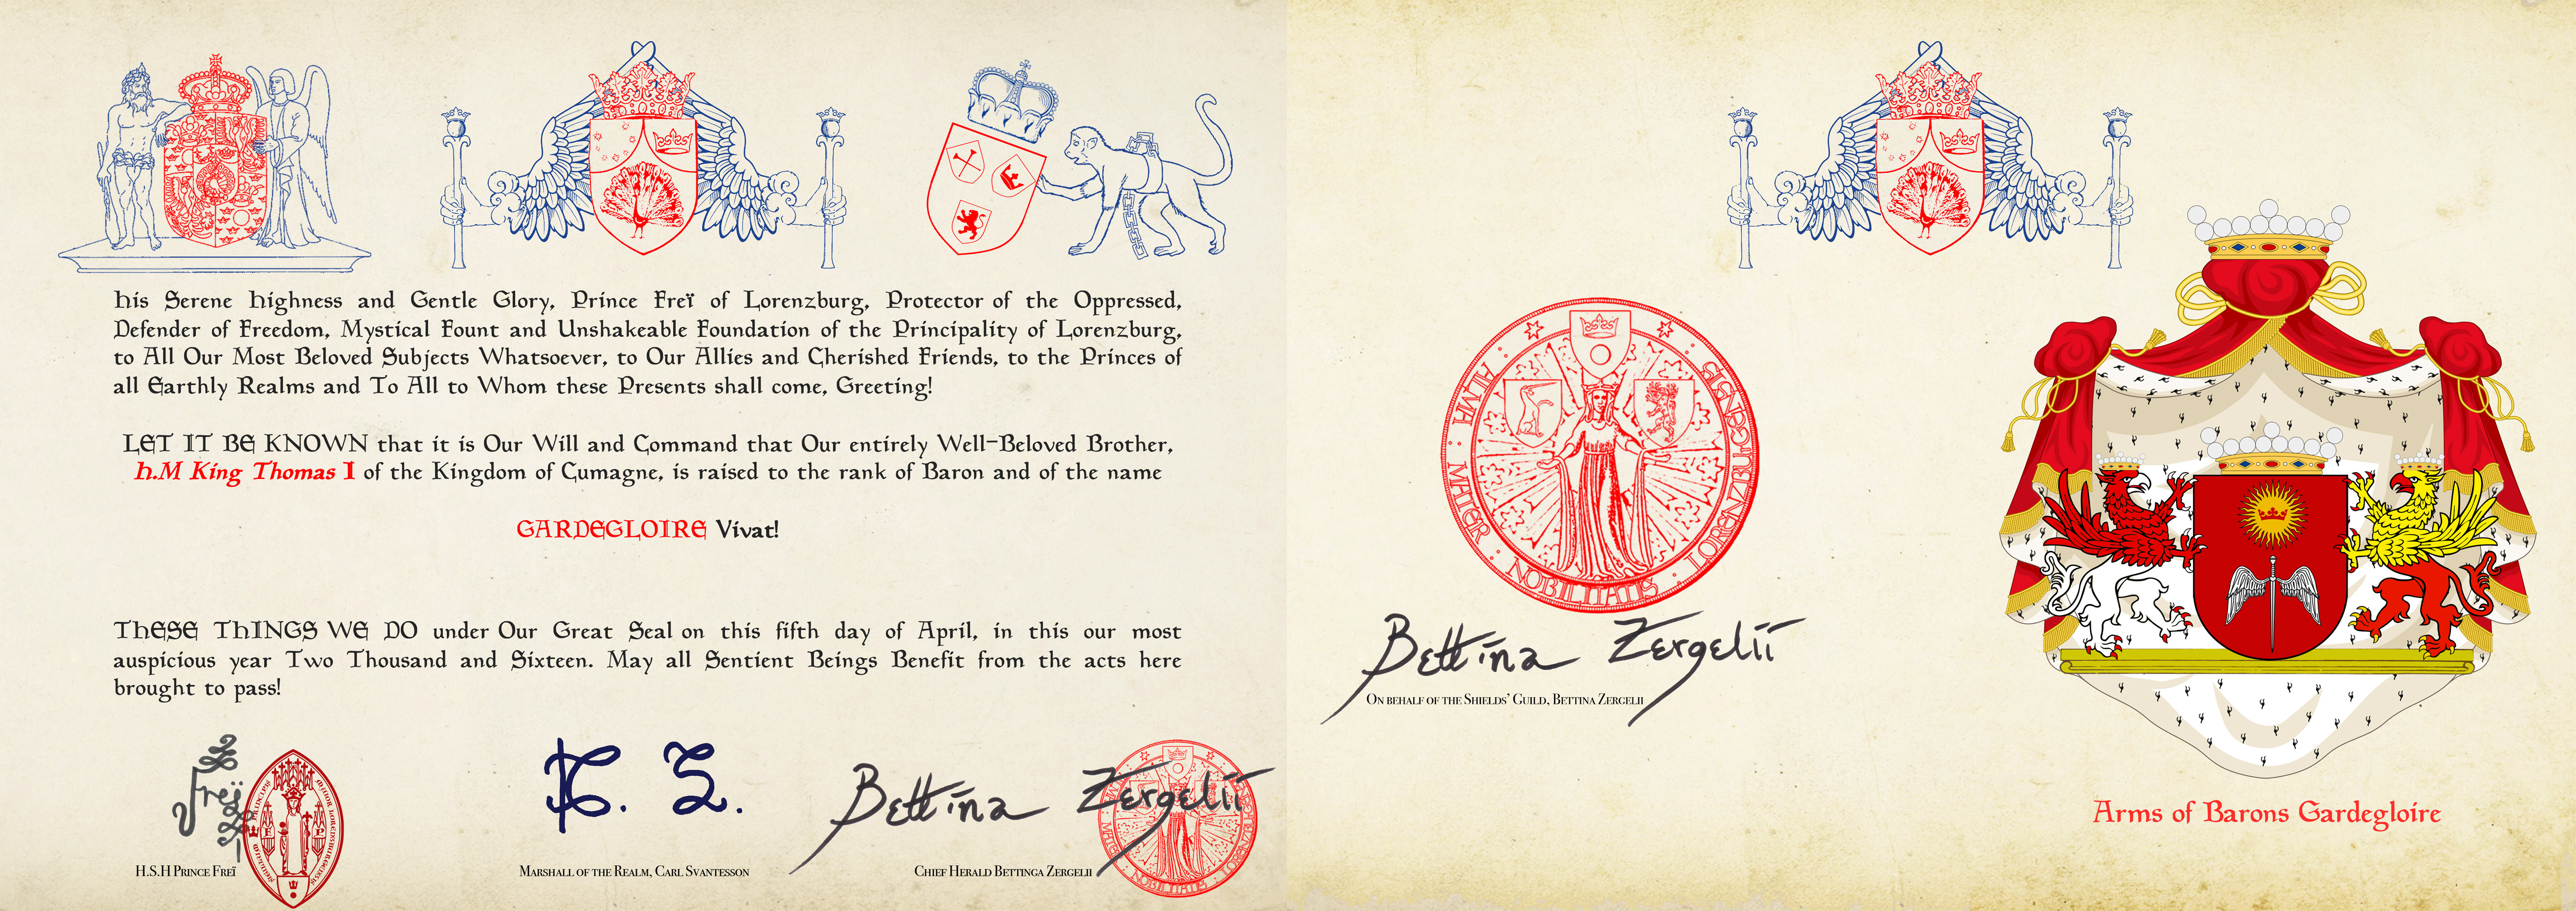 His Serene Highness and Gentle Glory, Prince Freï of Lorenzburg, Protector of the Oppressed,
Defender of Freedom, Mystical Fount and Unshakeable Foundation of the Principality of Lorenzburg,
to All Our Most Beloved Subjects Whatsoever, to Our Allies and Cherished Friends, to the Princes of
all Earthly Realms and To All to Whom these Presents shall come, Greeting!
LET IT BE KNOWN that it is Our Will and Command that Our entirely Well-Beloved Brother,
H.M King Thomas I of the Kingdom of Cumagne, is raised to the rank of Baron and of the name
GARDEGLOIRE Vivat!
THESE THINGS WE DO under Our Great Seal on this fifth day of April, in this our most
auspicious year Two Thousand and Sixteen. May all Sentient Beings Benefit from the acts here
brought to pass!
Freï
C. S.
Bettina Zergelii
H.S.H Prince Freï
Marshall of the Realm, Carl Svantesson
Chief Herald Bettinga Zergelii
ALMA · MATER · NOBILITATIS · LORENZBURGENSIS
Bettina Zergelii
On behalf of the Shields' Guild, Bettina Zergelii
Arms of Barons Gardegloire